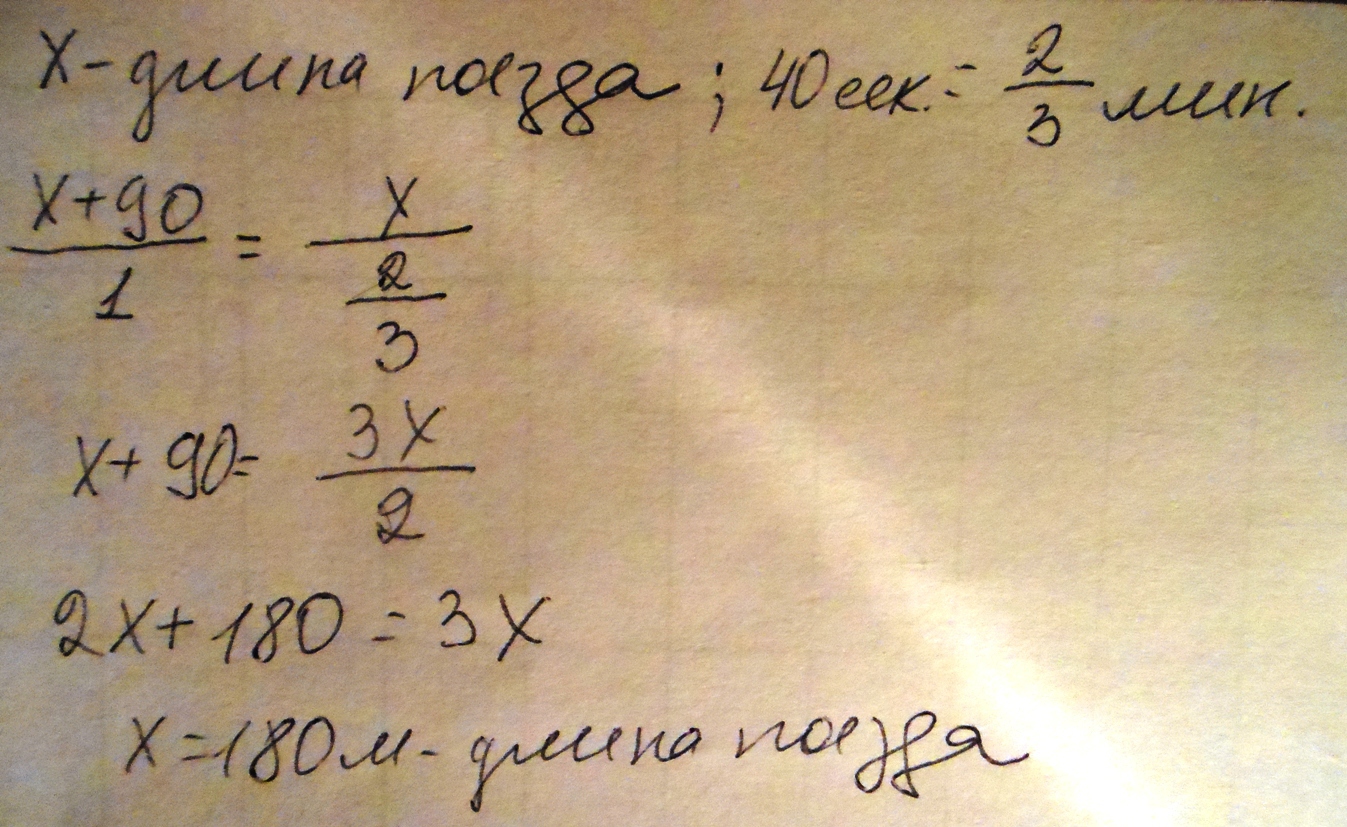 X - длина поезда ; 40 сек. = 2/3 мин.
(X+90)/1 = X/(2/3)
X + 90 = 3X/2
2X + 180 = 3X
X = 180 м - длина поезда